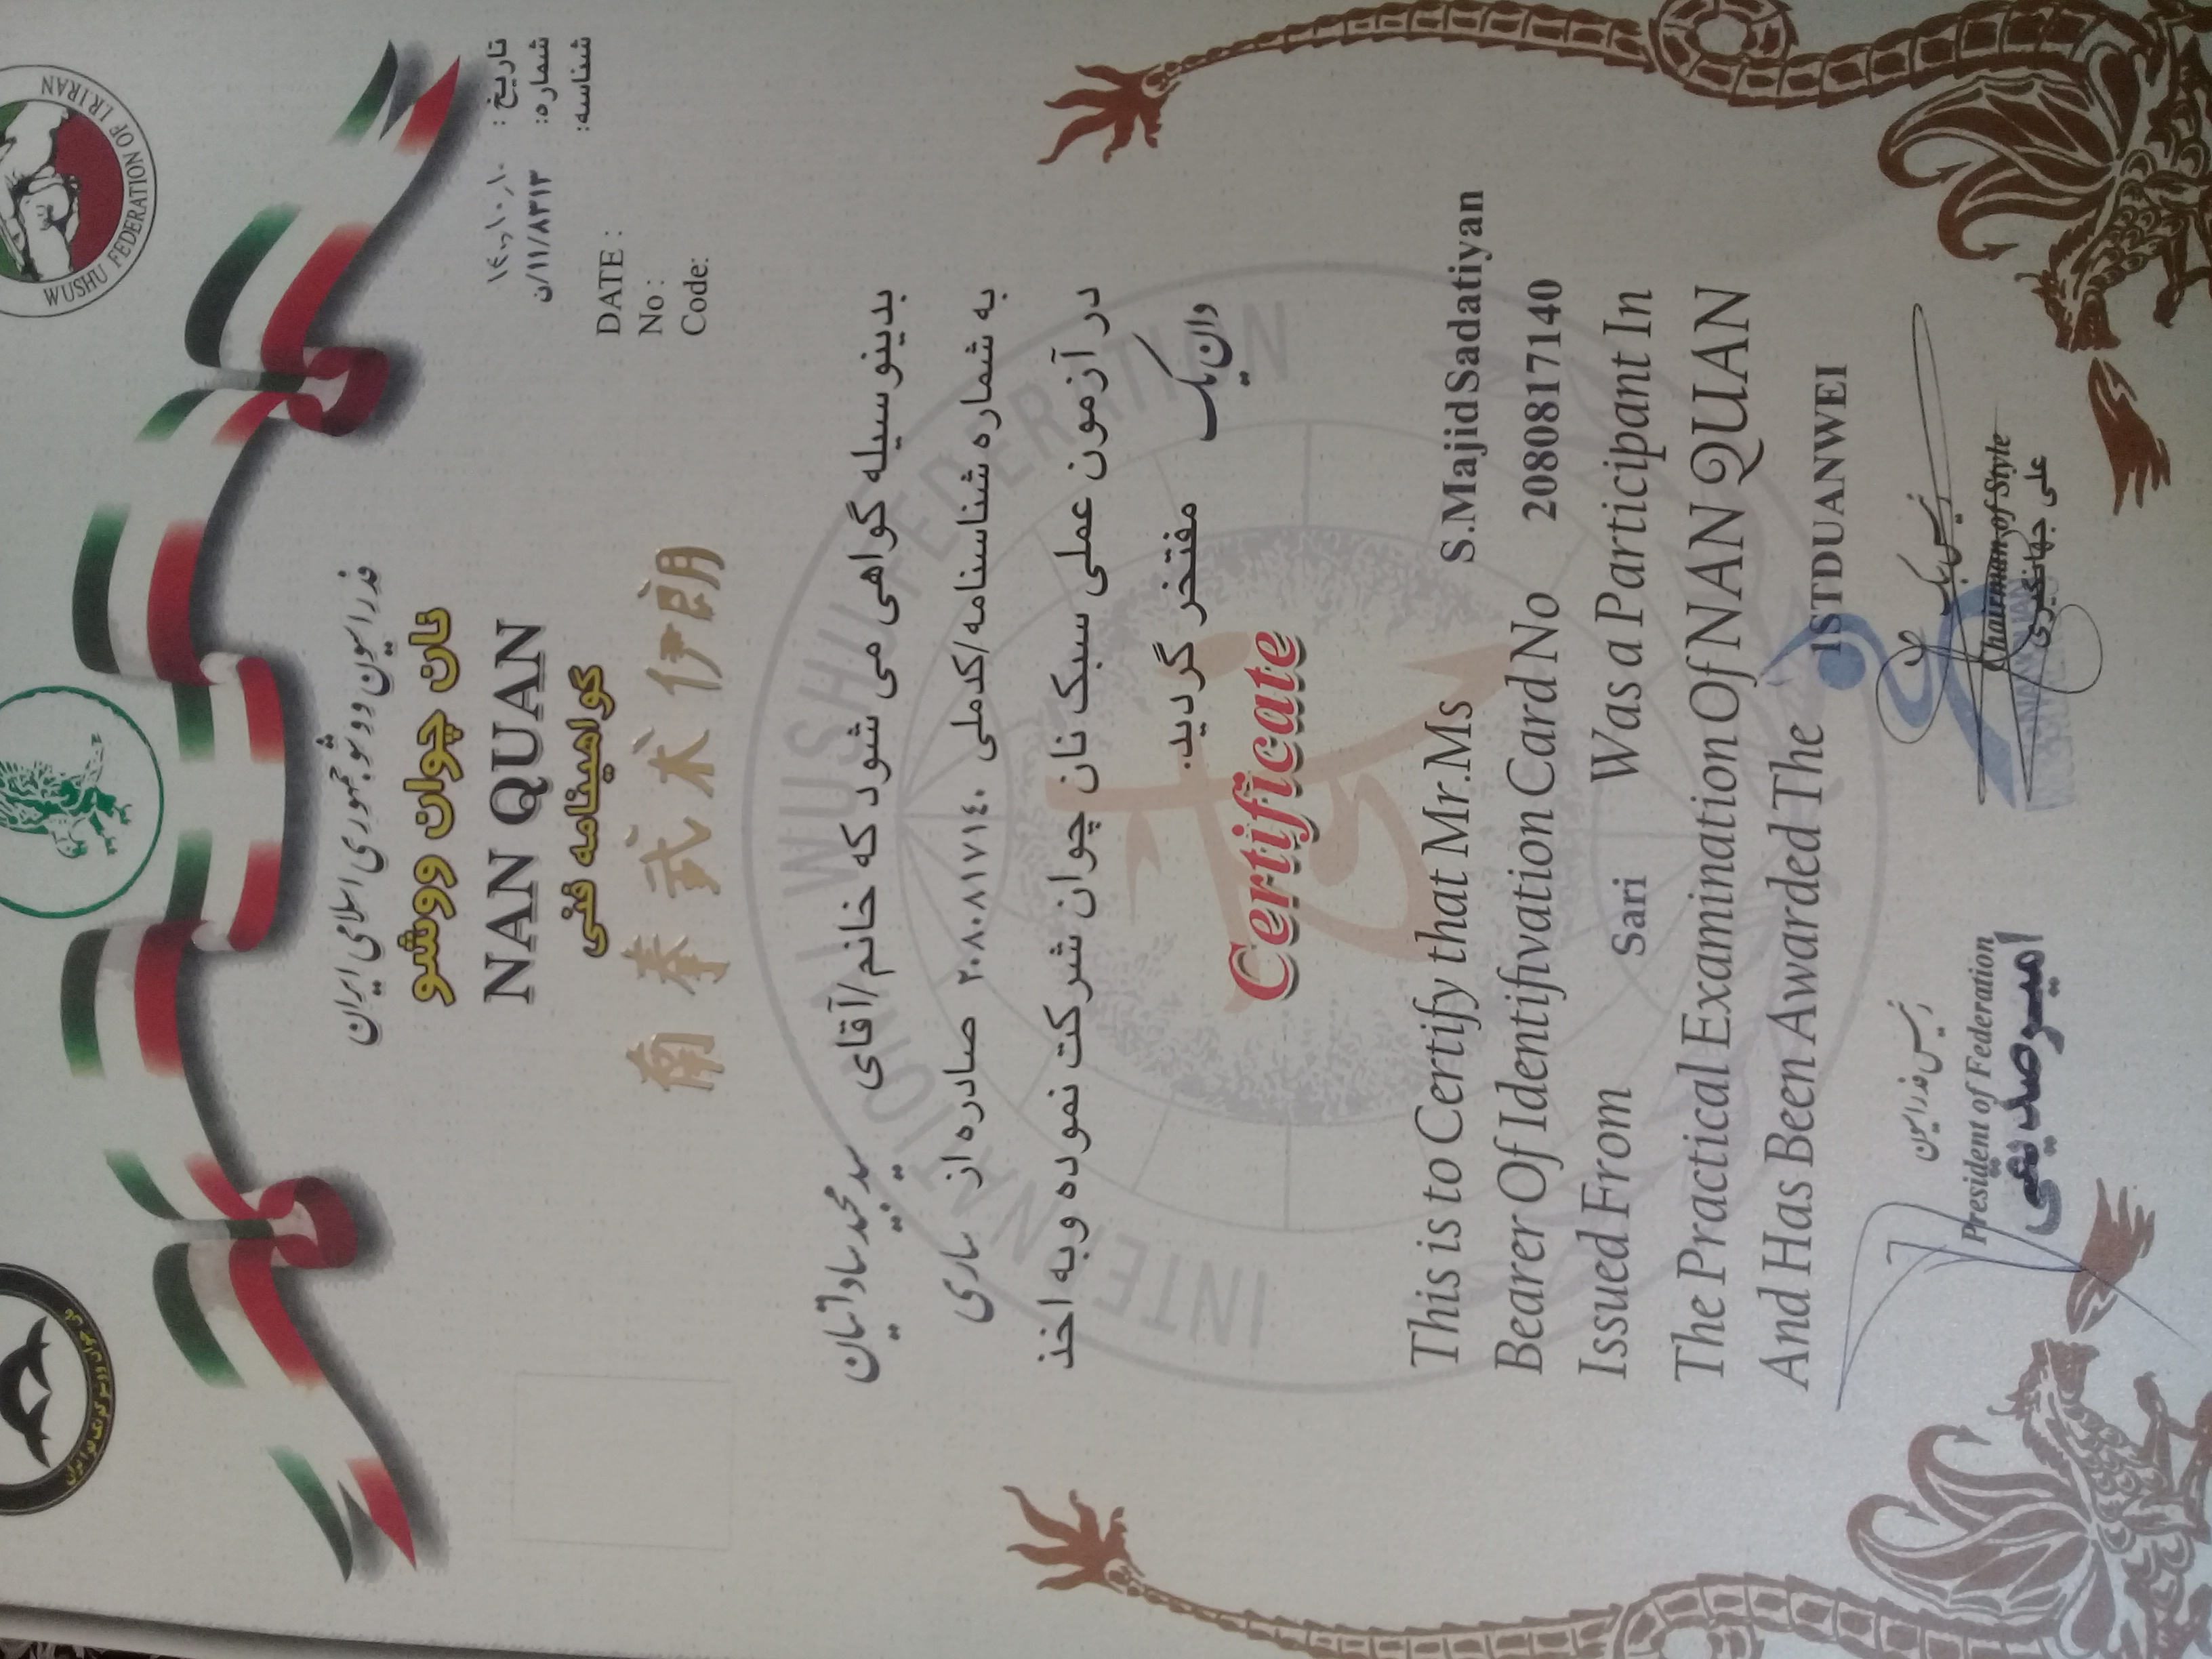 WUSHU FEDERATION OF I.R.IRAN
فدراسیون ووشو جمهوری اسلامی ایران
نان چوان ووشو
NAN QUAN
گواهینامه فنی
南拳武术伊朗
تاریخ : ۱۴۰۰,۱۰,۱۰
شماره: ۸۳۱۳/۱۱/ن
شناسه:
DATE :
No :
Code:
بدینوسیله گواهی می شود که خانم/آقای سید مجید ساداتیان
به شماره شناسنامه/کدملی ۲۰۸۰۸۱۷۱۴۰ صادره از ساری
در آزمون عملی سبک نان چوان شرکت نموده و به اخذ
دان یک مفتخر گردید.
INTERNATIONAL WUSHU FEDERATION
Certificate
This is to Certify that Mr.Ms S.Majid Sadatiyan
Bearer Of Identifivation Card No 2080817140
Issued From Sari Was a Participant In
The Practical Examination Of NAN QUAN
And Has Been Awarded The 1STDUANWEI
رئیس فدراسیون
President of Federation
امیر صدیقی
رئیس سبک
Chairman of Style
علی جهانگیری